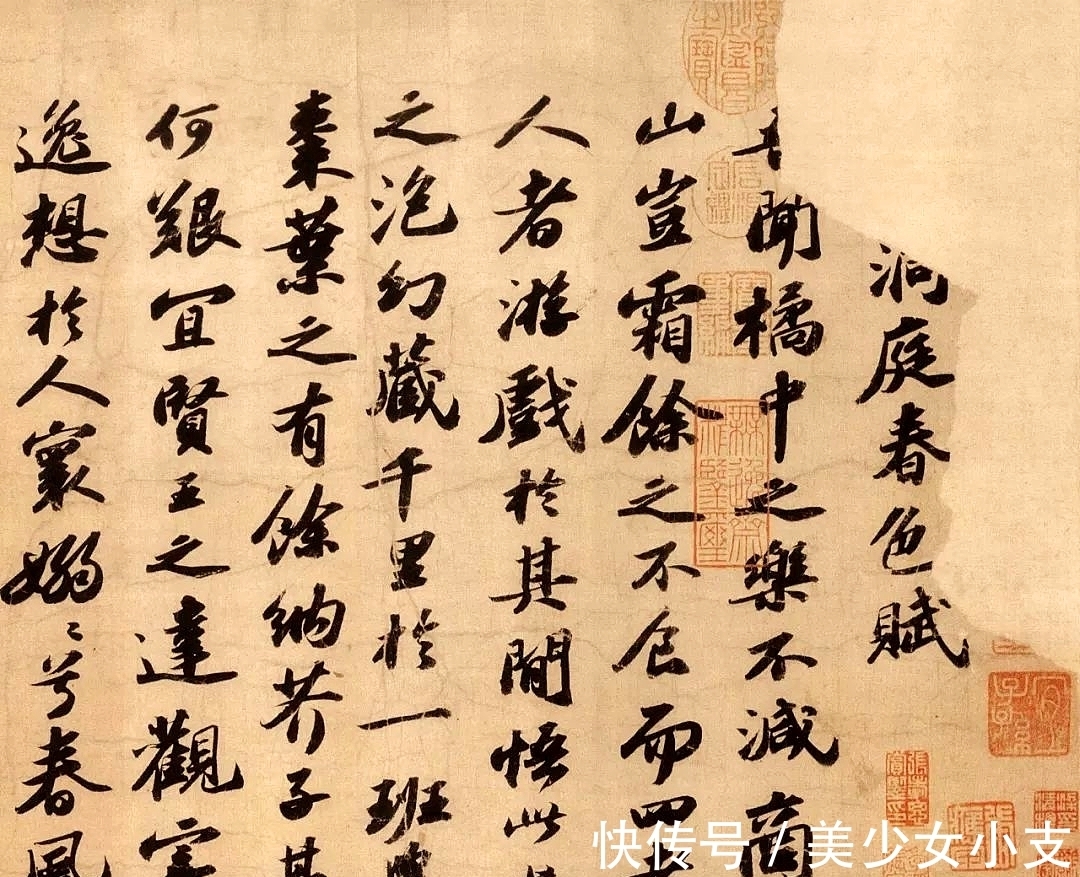 洞庭春色賦
聞橘中之樂不減商
山豈霜餘之不食而四
人者游戲於其間悟此
之泡幻藏千里於一班
棗葉之有餘納芥子其
何艱宜賢王之達觀寄
逸想於人寰嫋〻兮春風
快传号 / 美少女小支